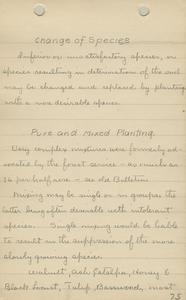 Change of Species
Inferior or unsatisfactory species, or
species resulting in deterioration of the soil
may be changed and replaced by planting
with a more desirable species.
Pure and Mixed Planting.
Very complex mixtures were formerly ad-
vocated by the forest service - as much as
16 per half acre - see old Bulletin
Mixing may be single or in groups; the
latter being often desirable with intolerant
species. Single mixing would be liable
to result in the suppression of the more
slowly growing species.
Walnut, Ash, Catalpa, Honey &
Black Locust, Tulip, Basswood, most
75